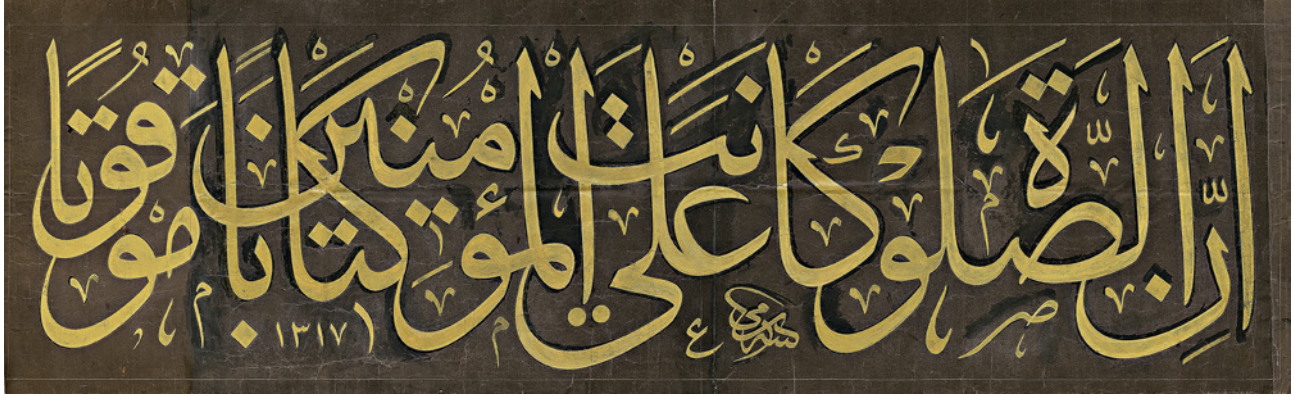 إِنَّ الصَّلٰوةَ كَانَتْ عَلَى الْمُؤْمِنِينَ كِتَابًا مَوْقُوتًا
سامي
١٣١٧